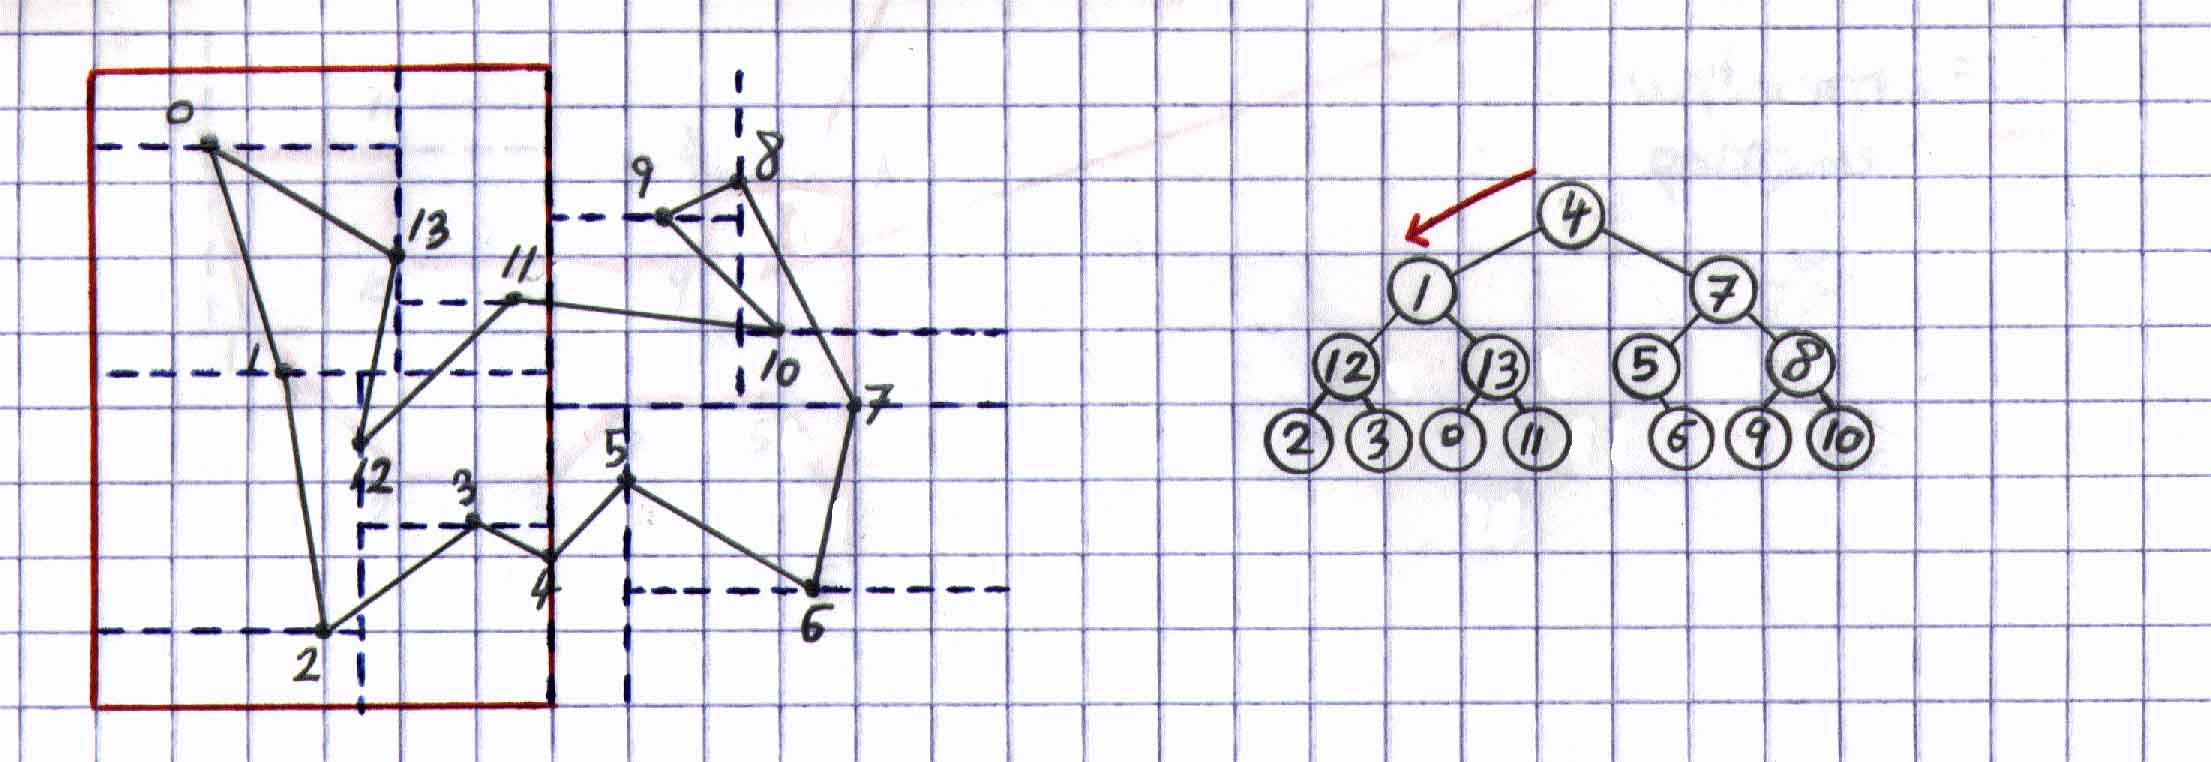 0
8
9
13
11
1
10
7
5
12
3
4
6
2
4
1 7
12 13 5 8
2 3 0 11 6 9 10